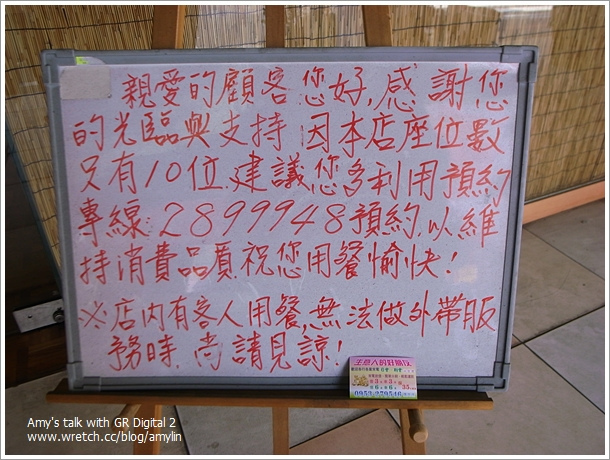 親愛的顧客您好,感謝您
的光臨與支持 因本店座位數
只有10位.建議您多利用預約
專線:2899948預約,以維
持消費品質.祝您用餐愉快!
※店內有客人用餐,無法做外帶服
務時.尚請見諒!
生意人的好朋友
0952-279546
Amy's talk with GR Digital 2
www.wretch.cc/blog/amylin